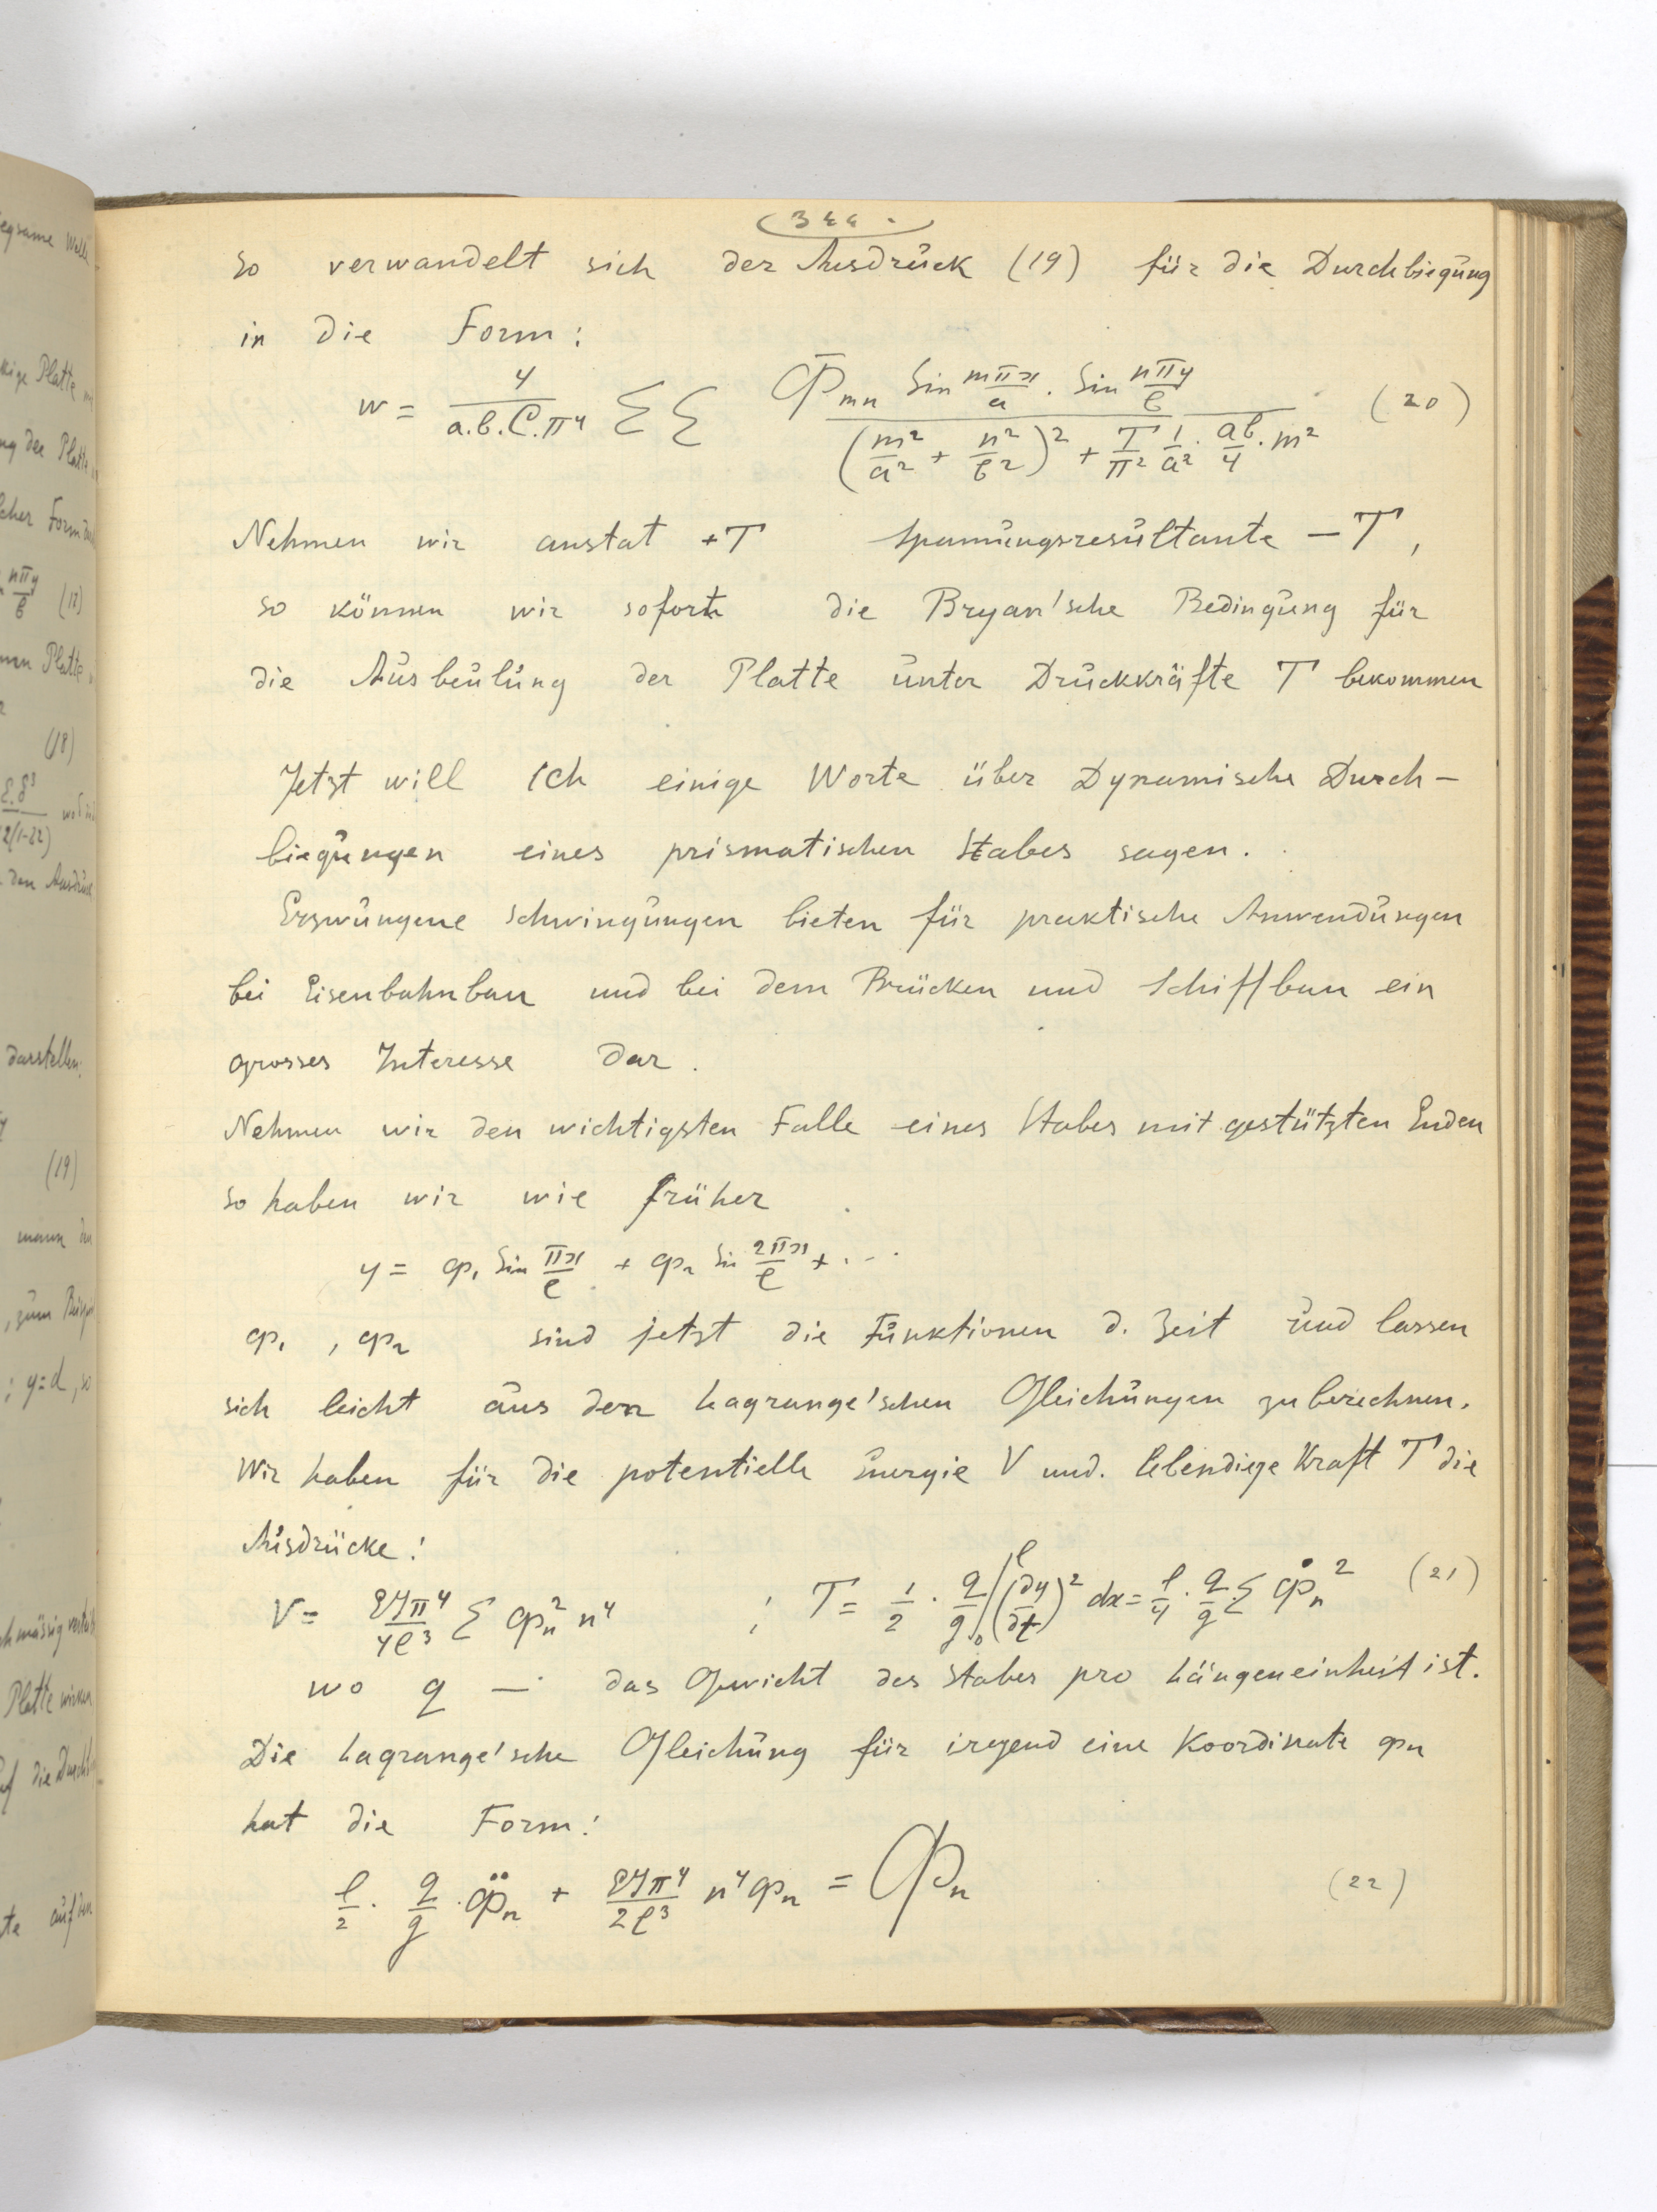 344.
so verwandelt sich der Ausdruck (19) für die Durchbiegung
in die Form:
w = 4/(a.b.C.π⁴) ΣΣ (Φ̄mn Sin mπx/a · Sin nπy/b) / ((m²/a² + n²/b²)² + T/π² 1/a² · ab/4 · m²) (20)
Nehmen wir anstat +T Spannungsresultante – T,
so können wir soforth die Bryan'sche Bedingung für
die Ausbeulung der Platte unter Druckkräfte T bekommen
Jetzt will ich einige Worte über Dynamische Durch–
biegungen eines prismatischen Stabes sagen.
Erzwungene Schwingungen bieten für praktische Anwendungen
bei Eisenbahnbau und bei dem Brücken und Schiffbau ein
grosses Interesse dar.
Nehmen wir den wichtigsten Falle eines Stabes mit gestützten Enden
so haben wir wie früher
y = φ₁ Sin πx/l + φ₂ Sin 2πx/l + ...
φ₁ , φ₂ sind jetzt die Funktionen d. Zeit und lassen
sich leicht aus den Lagrange'schen Gleichungen zu berechnen.
Wir haben für die potentielle Energie V und. lebendige Kraft T die
Ausdrücke:
V = EJπ⁴/4l³ Σ φn² n⁴ ; T = 1/2 · q/g ∫₀ˡ (∂y/∂t)² dx = l/4 · q/g Σ φ̇n² (21)
wo q — das Gewicht des Stabes pro Längeneinheit ist.
Die Lagrange'sche Gleichung für irgend eine Koordinate φn
hat die Form:
l/2 · q/g · φ̈n + EJπ⁴/2l³ n⁴φn = Φn (22)